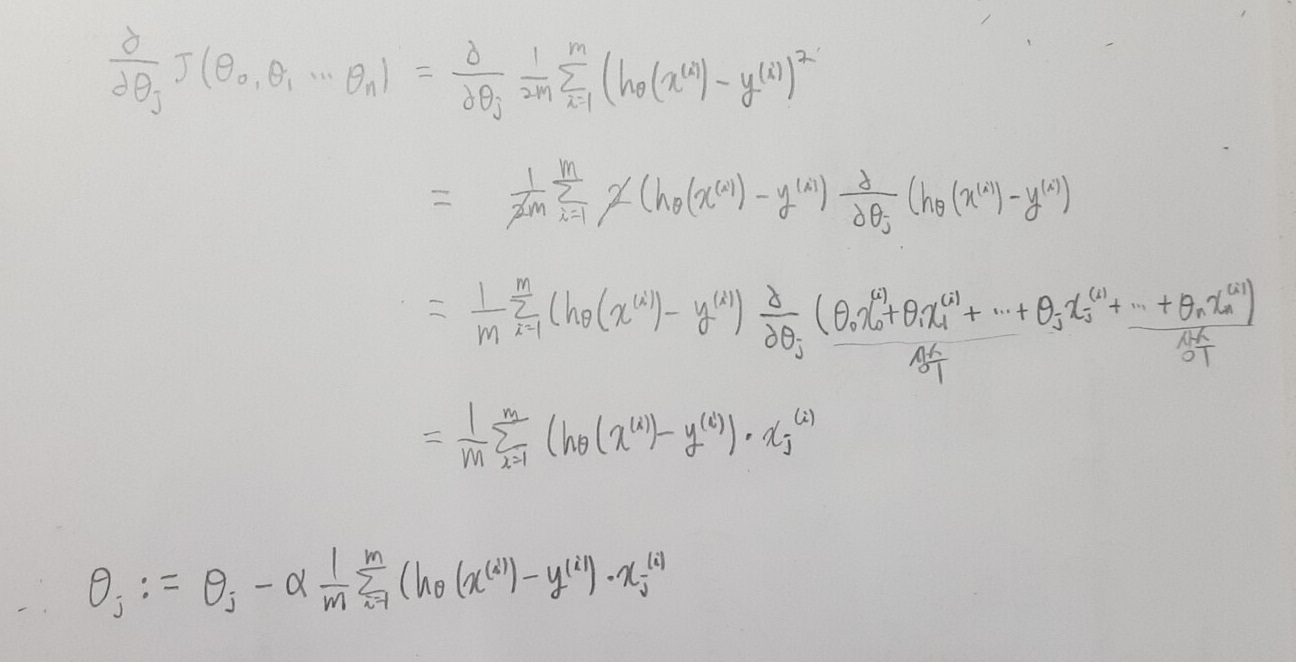 ∂/∂θⱼ J(θ₀, θ₁ ⋯ θₙ) = ∂/∂θⱼ 1/2m ∑ᵢ₌₁ᵐ (hθ(x⁽ⁱ⁾) - y⁽ⁱ⁾)²
= 1/2m ∑ᵢ₌₁ᵐ 2 (hθ(x⁽ⁱ⁾) - y⁽ⁱ⁾) ∂/∂θⱼ (hθ(x⁽ⁱ⁾) - y⁽ⁱ⁾)
= 1/m ∑ᵢ₌₁ᵐ (hθ(x⁽ⁱ⁾) - y⁽ⁱ⁾) ∂/∂θⱼ (θ₀x₀⁽ⁱ⁾ + θ₁x₁⁽ⁱ⁾ + ⋯ + θⱼxⱼ⁽ⁱ⁾ + ⋯ + θₙxₙ⁽ⁱ⁾)
상수 상수
= 1/m ∑ᵢ₌₁ᵐ (hθ(x⁽ⁱ⁾) - y⁽ⁱ⁾) · xⱼ⁽ⁱ⁾
∴ θⱼ := θⱼ - α 1/m ∑ᵢ₌₁ᵐ (hθ(x⁽ⁱ⁾) - y⁽ⁱ⁾) · xⱼ⁽ⁱ⁾